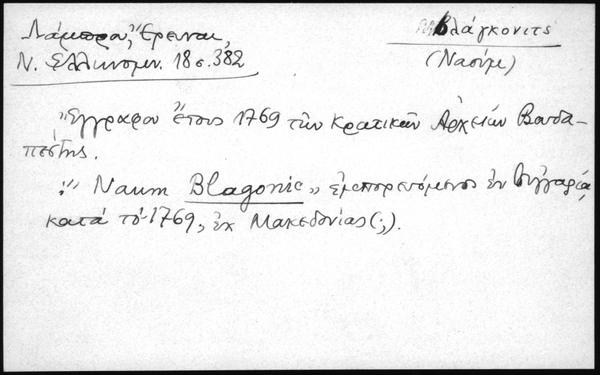 Λάμπρου, Ἔρευναι,
Ν. Ἑλληνομν. 18 σ. 382
Βλάγκονιτς
(Ναούμ)
Ἔγγραφον ἔτους 1769 τῶν Κρατικῶν Ἀρχείων Βουδα-
πέστης.
:" Naum Blagonic „ ἐμπορευόμενος ἐν Οὑγγαρίᾳ,
κατά τό 1769, ἐκ Μακεδονίας (;).